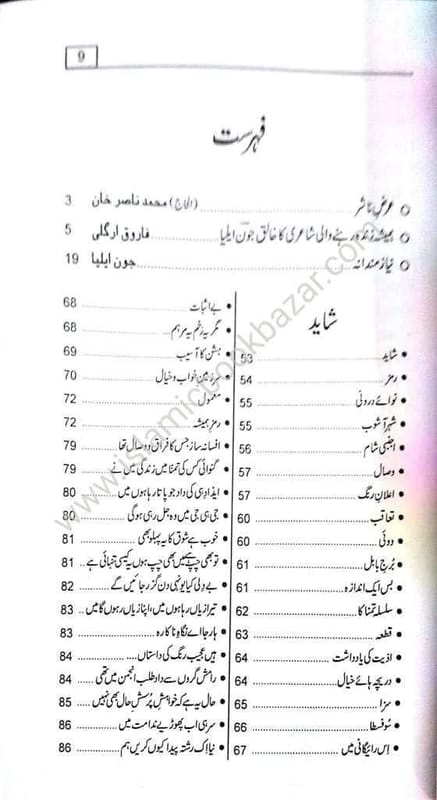 9
فہرست
عرضِ ناشر (الحاج) محمد ناصر خان 3
ہمیشہ زندہ رہنے والی شاعری کا خالق جون ایلیا فاروق ارگلی 5
نیاز مندانہ جون ایلیا 19
شاید
شاید 53
رمز 54
نوائے درونی 55
شہر آشوب 55
اجنبی شام 56
وصال 57
اعلانِ رنگ 57
تعاقب 60
دوئی 60
برجِ بابل 61
بس ایک اندازہ 61
سلسلہ تمنا کا 62
قطعہ 63
اذیت کی یادداشت 64
دریچہ ہائے خیال 64
سزا 65
سوفسطا 66
اِس رایگانی میں 67
بے اثبات 68
مگر یہ زخم یہ مرہم 68
جشن کا آسیب 69
سرزمینِ خواب و خیال 70
معمول 72
رمزِ ہمیشہ 72
افسانہ ساز جس کا فراق و وصال تھا 79
گنوائی کس کی تمنا میں زندگی میں نے 79
ایذا دہی کی داد جو پاتا رہا ہوں میں 80
جی ہی جی میں وہ جل رہی ہوگی 80
خوب ہے شوق کا یہ پہلو بھی 81
تو بھی چپ ہے میں بھی چپ ہوں یہ کیسی تنہائی ہے 81
بے دلی کیا یونہی دن گزر جائیں گے 82
تیرا زیاں رہا ہوں میں، اپنا زیاں رہوں گا میں 83
ہار جا اے نگاہِ ناکارہ 83
ہیں عجیب رنگ کی داستاں 84
رامش گروں سے داد طلب انجمن میں تھی 84
حال یہ ہے کہ خواہشِ پرسشِ حال بھی نہیں 85
سر ہی اب پھوڑیے ندامت میں 86
نیا اک رشتہ پیدا کیوں کریں ہم 86
www.islamicbookbazar.com